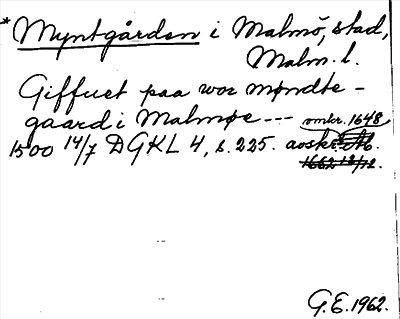 * Myntgården i Malmö, stad,
Malm. l.
Giffuet paa wor møndte-
gaard i Malmøe ---
omkr. 1648
1500 14/7 DGKL 4, s. 225. avskr.
1662 12/12.
G.E. 1962.